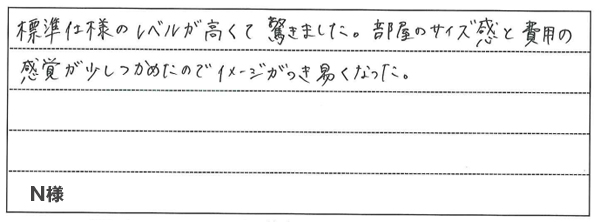 標準仕様のレベルが高くて驚きました。部屋のサイズ感と費用の
感覚が少しつかめたのでイメージがつき易くなった。
N様